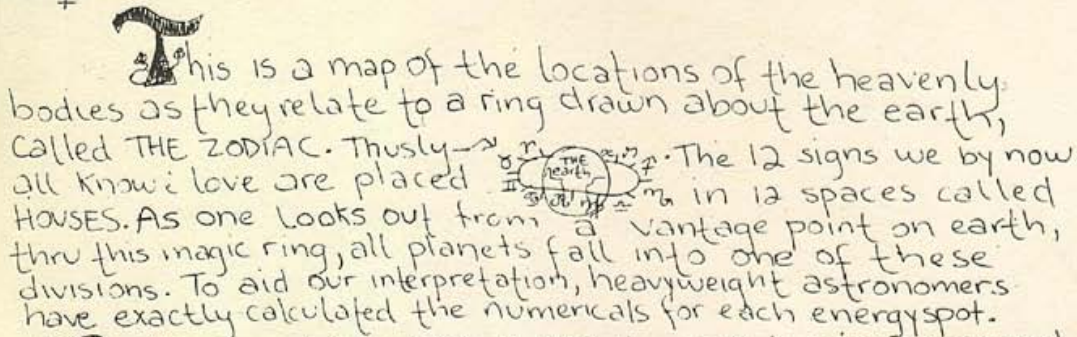 This is a map of the locations of the heavenly
bodies as they relate to a ring drawn about the earth,
called THE ZODIAC. Thusly → ♈ ♉ ♊ THE earth ♐ ♏ . The 12 signs we by now
all know & love are placed in 12 spaces called
HOUSES. As one looks out from a vantage point on earth,
thru this magic ring, all planets fall into one of these
divisions. To aid our interpretation, heavyweight astronomers
have exactly calculated the numericals for each energyspot.